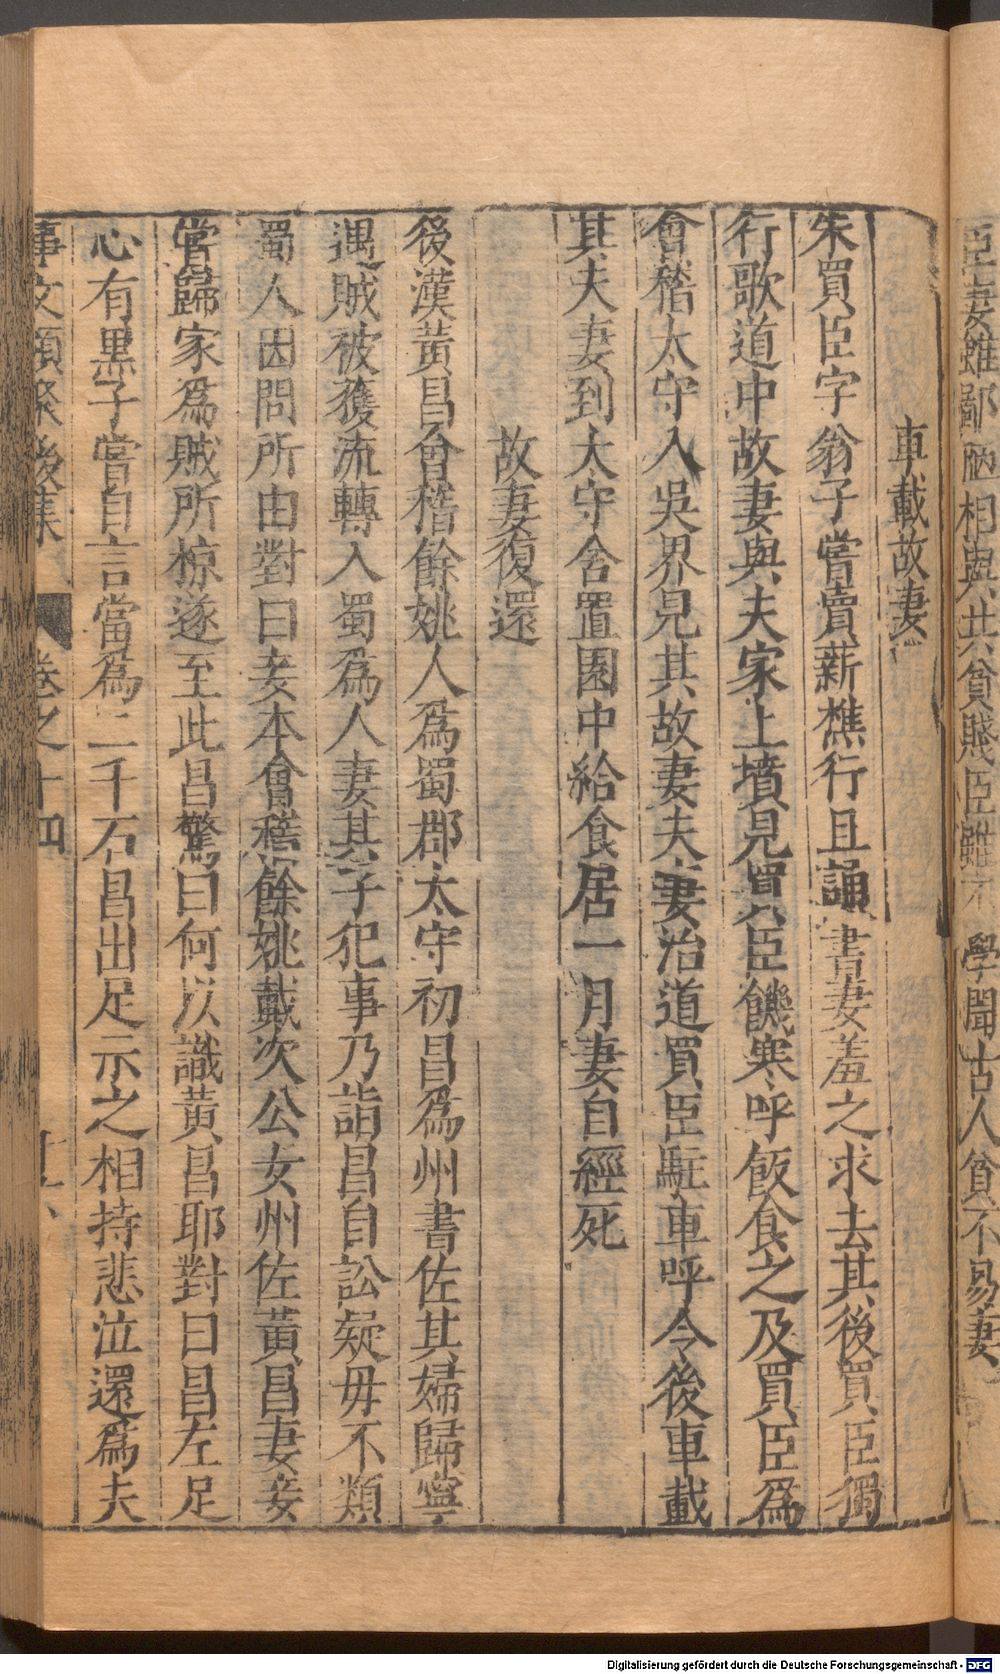 臣妻雖鄙陋相與共貧賤臣雖不學聞古人貧不易妻
車載故妻
朱買臣字翁子嘗賣薪樵行且誦書妻羞之求去其後買臣獨
行歌道中故妻與夫家上墳見買臣饑寒呼飯食之及買臣爲
會稽太守入吳界見其故妻夫妻治道買臣駐車呼令後車載
其夫妻到太守舍置園中給食居一月妻自經死
故妻復還
後漢黃昌會稽餘姚人爲蜀郡太守初昌爲州書佐其婦歸寧
遇賊被獲流轉入蜀爲人妻其子犯事乃詣昌自訟疑毋不類
蜀人因問所由對曰妾本會稽餘姚戴次公女州佐黃昌妻妾
嘗歸家爲賊所掠遂至此昌驚曰何以識黃昌耶對曰昌左足
心有黑子嘗自言當爲二千石昌出足示之相持悲泣還爲夫
事文類聚後集 卷之十四
Digitalisierung gefördert durch die Deutsche Forschungsgemeinschaft - DFG